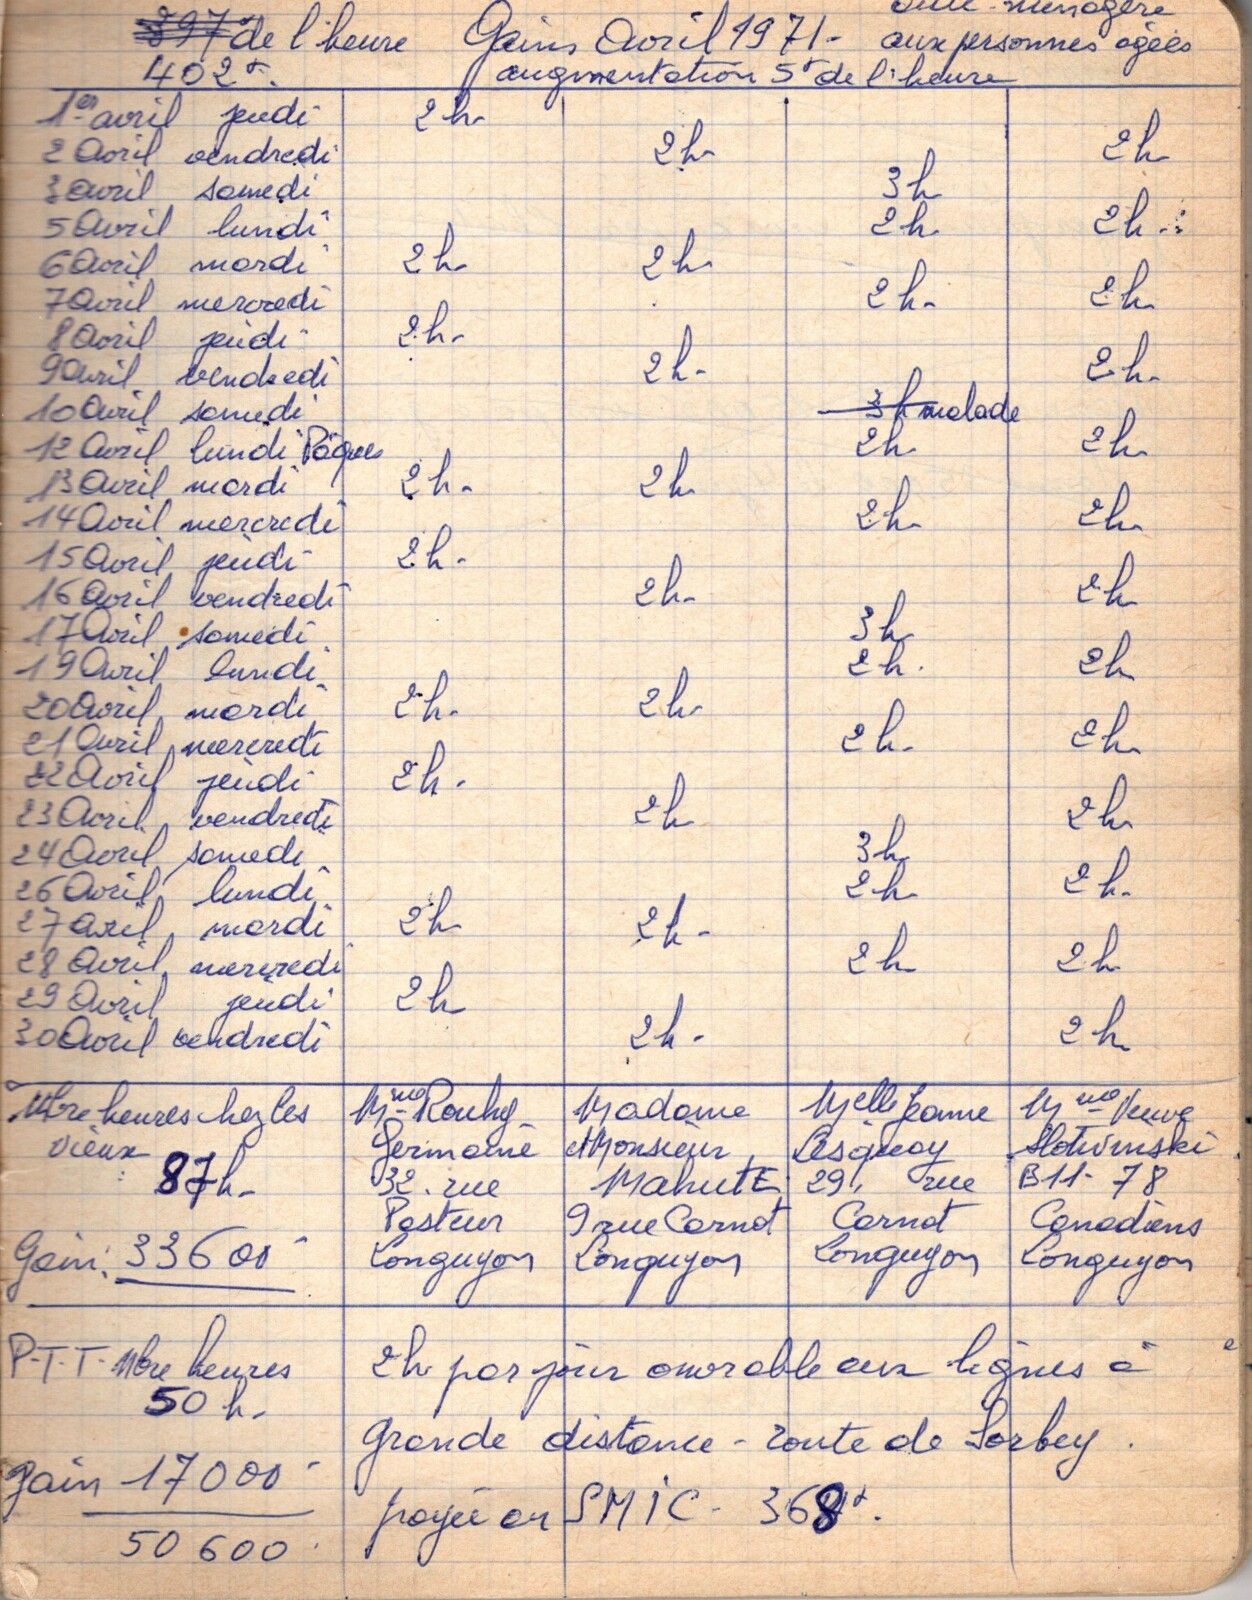 de l'heure Gains Avril 1971 - aux personnes agées
402f. augmentation 5f de l'heure
1er avril jeudi 2h.
2 Avril vendredi 2h 2h
3 avril samedi 3h
5 Avril lundi 2h. 2h.
6 Avril mardi 2h 2h
7 Avril mercredi 2h. 2h.
8 Avril jeudi 2h.
9 Avril vendredi 2h. 2h.
10 Avril samedi 3h malade
12 Avril lundi Pâques 2h. 2h.
13 Avril mardi 2h. 2h
14 Avril mercredi 2h. 2h.
15 Avril jeudi 2h.
16 Avril vendredi 2h. 2h
17 Avril samedi 3h.
19 Avril lundi 2h. 2h
20 Avril mardi 2h. 2h.
21 Avril mercredi 2h. 2h.
22 Avril jeudi 2h.
23 Avril vendredi 2h 2h.
24 Avril samedi 3h
26 Avril lundi 2h. 2h.
27 avril mardi 2h 2h.
28 Avril mercredi 2h 2h
29 Avril jeudi 2h
30 Avril vendredi 2h. 2h.
Nbre heures chez les vieux
87h.
Gain: 33600
Mme Rouhy
Germaine
32. rue
Pasteur
Longuyon
Madame
et Monsieur
Mahuté
9 rue Carnot
Longuyon
Melle Jeanne
29, rue
Carnot
Longuyon
Mme Veuve
Slotwinski
B11 - 78
Canadiens
Longuyon
P-T-T- Nbre heures
50 h.
gain 17000
50 600
2h par jour aux lignes à
grande distance - route de Sorbey.
payée au SMIC - 368f.